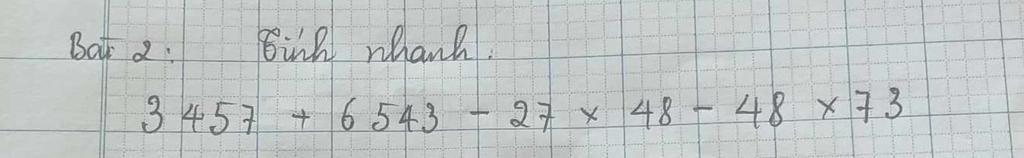 Bài 2: Tính nhanh.
3 457 + 6 543 - 27 × 48 - 48 × 73